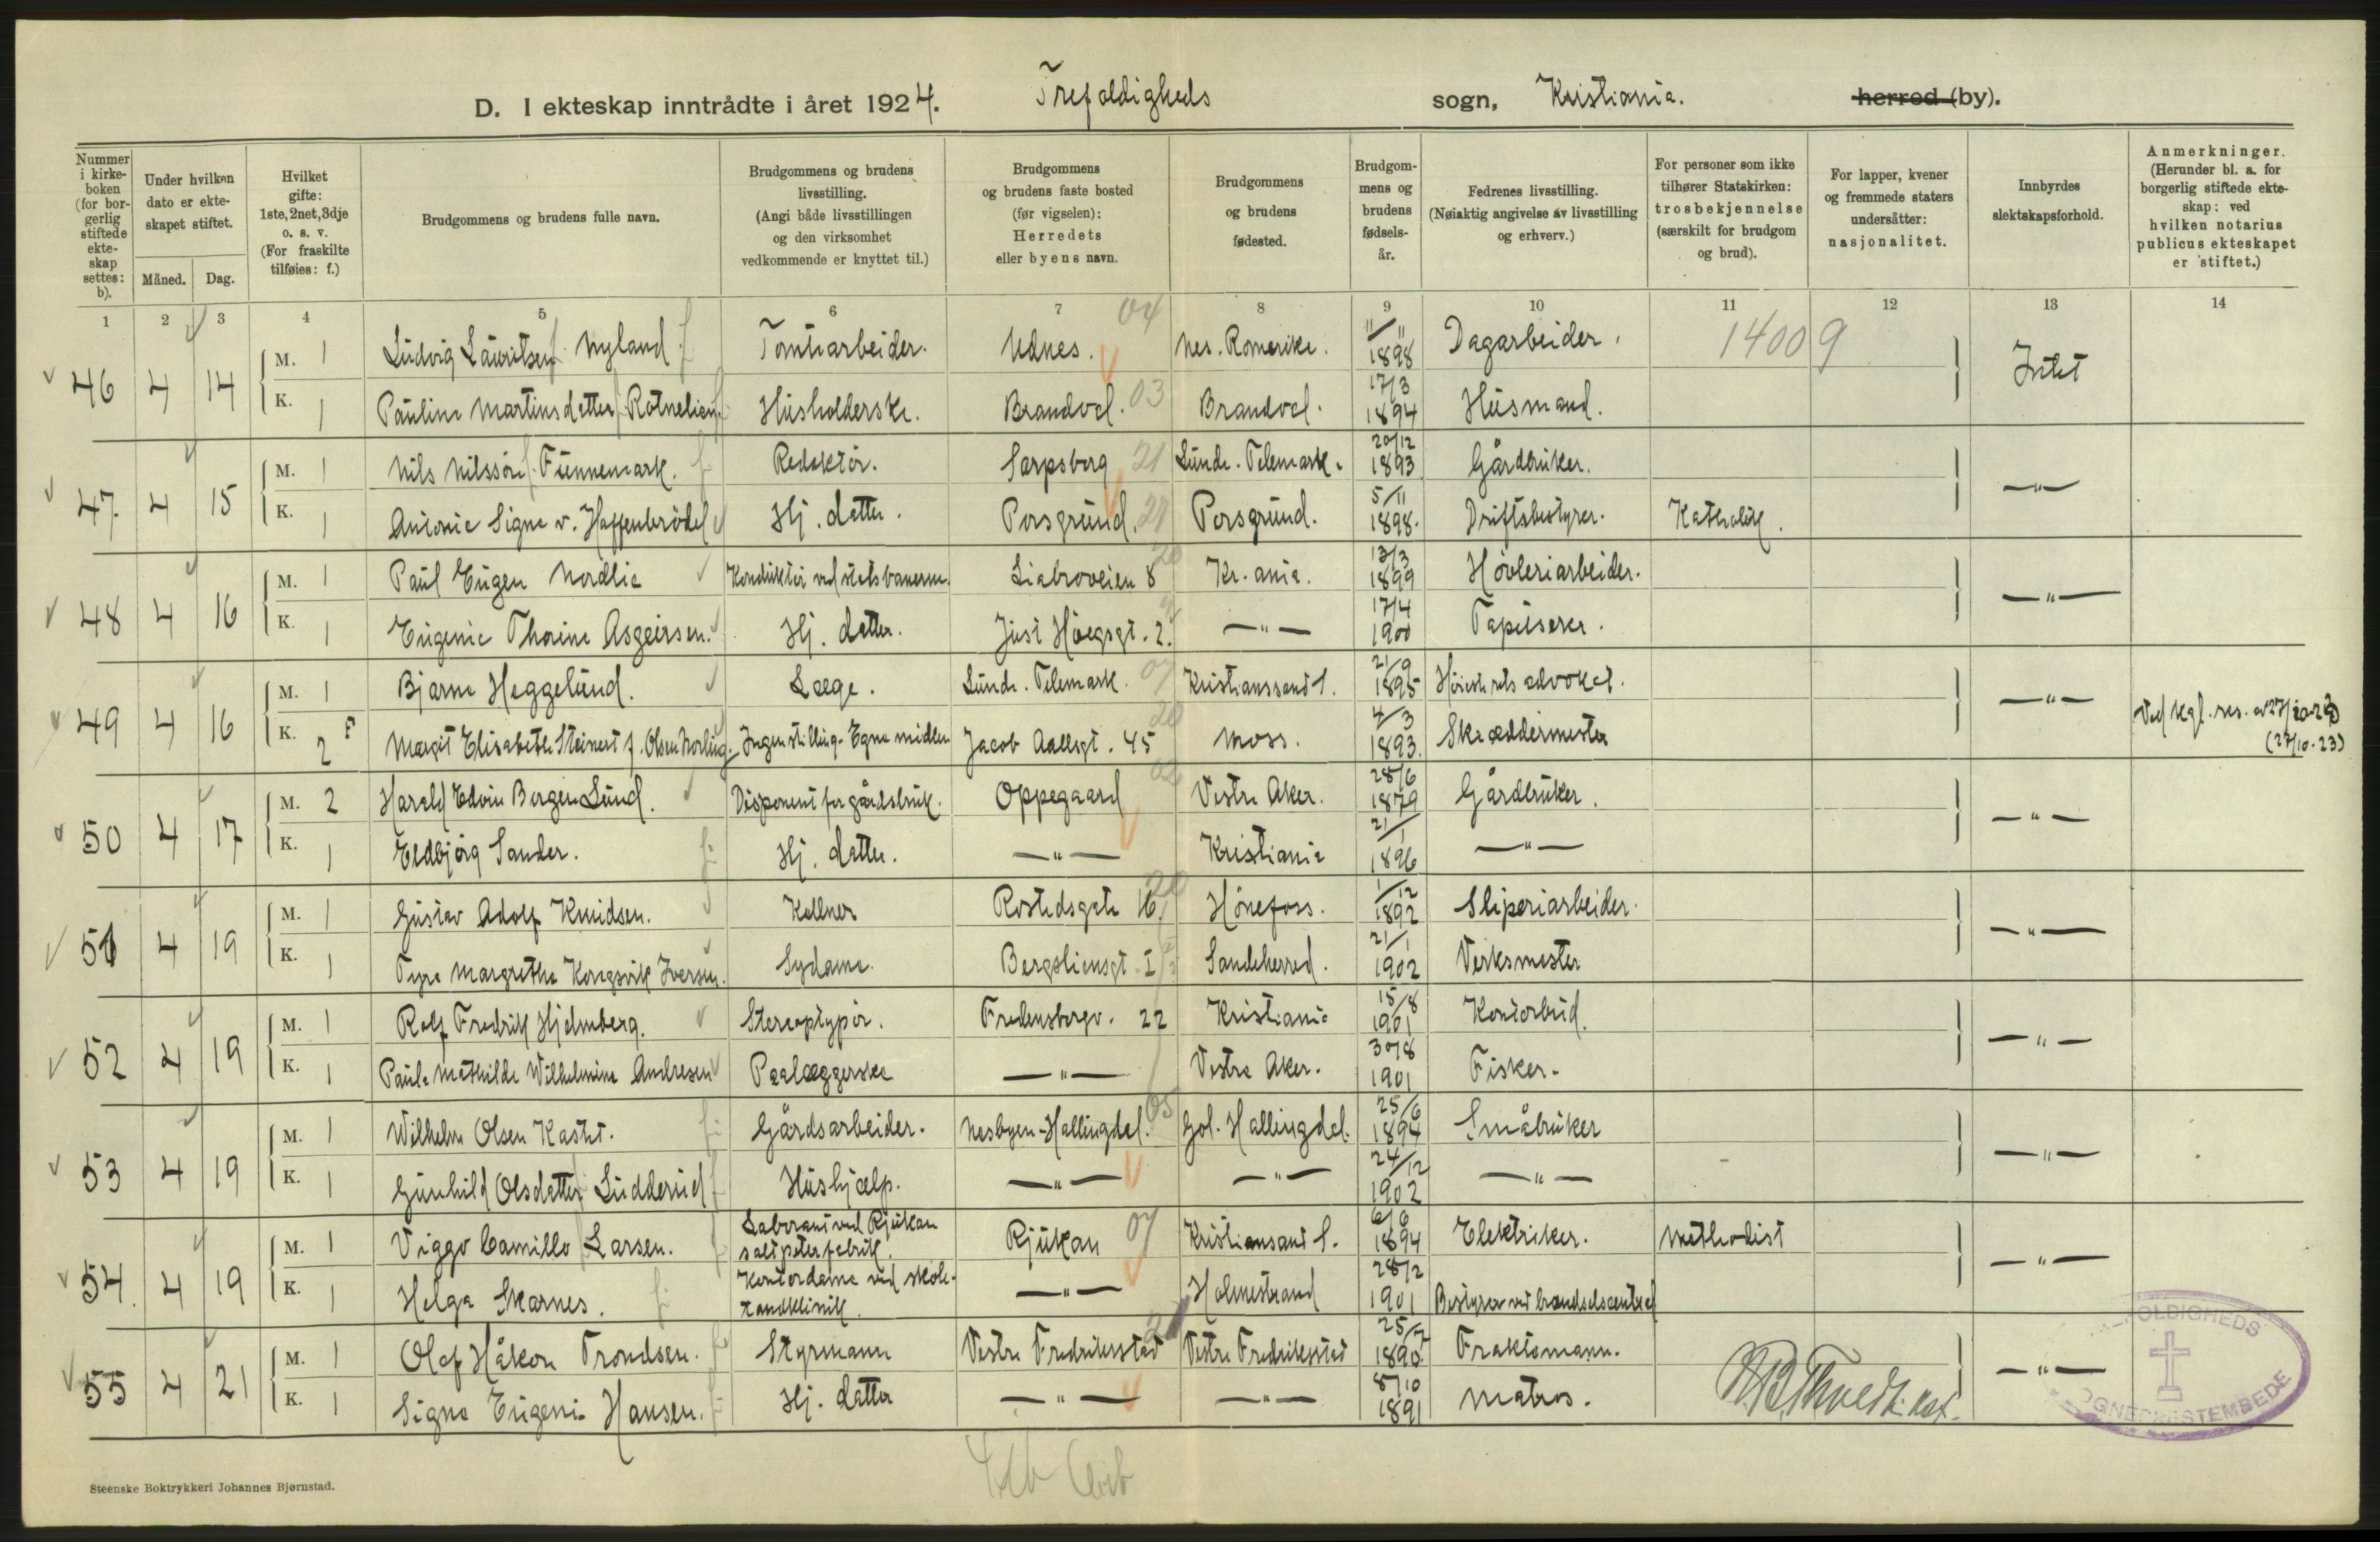 D. I ekteskap inntrådte i året 1924. Trefoldigheds sogn, Kristiania. herred (by).
Nummer i kirkeboken (for borgerlig stiftede ekteskap settes: b).
Under hvilken dato er ekteskapet stiftet. Måned. Dag.
Hvilket gifte: 1ste, 2net, 3dje o. s. v. (For fraskilte tilføies: f.)
Brudgommens og brudens fulle navn.
Brudgommens og brudens livsstilling. (Angi både livsstillingen og den virksomhet vedkommende er knyttet til.)
Brudgommens og brudens faste bosted (før vigselen): Herredets eller byens navn.
Brudgommens og brudens fødested.
Brudgommens og brudens fødselsår.
Fedrenes livsstilling. (Nøiaktig angivelse av livsstilling og erhverv.)
For personer som ikke tilhører Statskirken: trosbekjennelse (særskilt for brudgom og brud).
For lapper, kvener og fremmede staters undersåtter: nasjonalitet.
Innbyrdes slektskapsforhold.
Anmerkninger. (Herunder bl. a. for borgerlig stiftede ekteskap: ved hvilken notarius publicus ekteskapet er stiftet.)
1 2 3 4 5 6 7 8 9 10 11 12 13 14
46 4 14 M. 1 Ludvig Lauritsen Nyland Tomtearbeider. Udnes. 04 Nes. Romerike. 11/11 1898 Dagarbeider. 14009 Intet
K. 1 Pauline Martinsdatter Rotnelien Husholderske. Brandval. 03 Brandval. 17/3 1894 Husmand.
47 4 15 M. 1 Nils Nilssøn Funnemark. Redaktør. Sarpsborg 21 Lunde. Telemark. 20/12 1893 Gårdbruker. —"—
K. 1 Antonie Signe v. Haffenbrädel Hj. datter. Porsgrund. Porsgrund. 5/11 1898. Driftsbestyrer. Katholik.
48 4 16 M. 1 Paul Eugen Nordlie Konduktør ved statsbanerne. Liabroveien 8 Kr.ania. 13/3 1899 Høvleriarbeider. —"—
K. 1 Eugenie Thorine Asgeirsen. Hj. datter. Just Høegsgt. 2. —"— 17/4 1900 Tapetserer.
49 4 16 M. 1 Bjarne Heggelund. Læge. Lunde. Telemark. 07 Kristianssand S. 21/9 1895 Høiesterets advokat. —"— Ved kgl. res. av 27/10-23
K. 2 F Margit Elisabeth Steinert f. Olsen Norling Ingen stilling. Egne midler Jacob Aallsgt. 45 Moss. 4/3 1893. Skræddermester (27/10.23)
50 4 17 M. 2 Harald Edvin Bergen Lund. Disponent for gårdsbruk. Oppegaard 02 Vestre Aker. 28/6 1879 Gårdbruker. —"—
K. 1 Eldbjørg Sander. Hj. datter. —"— Kristiania 21/1 1896 —"—
51 4 19 M. 1 Gustav Adolf Knudsen. Kellner Rostedsgate 16. Hønefoss. 1/12 1892 Sliperiarbeider. —"—
K. 1 Tyra Margrethe Kongsvik Iversen. Sydame. Bergsliensgt. Sandeherred. 21/1 1902 Verksmester
52 4 19 M. 1 Rolf Fredrik Hjelmberg. Stereoptypør. Fredensborgv. 22 Kristiania 15/8 1901 Kontorbud. —"—
K. 1 Paula Mathilde Wilhelmine Andresen Paalæggerske —"— Vestre Aker. 30/8 1901 Fisker.
53 4 19 M. 1 Wilhelm Olsen Kastet. Gårdsarbeider. Nesbyen-Hallingdal. 05 Gol. Hallingdal. 25/6 1894 Småbruker —"—
K. 1 Gunhild Olsdatter Ludderud Hushjælp. —"— —"— 24/12 1902 —"—
54. 4 19 M. 1 Viggo Camillo Larsen. Laborant ved Rjukan salpeterfabrik. Rjukan 07 Kristiansand S. 6/6 1894 Elektriker. Methodist —"—
K. 1 Helga Skarnes. Kontordame ved skoletandklinik. —"— Holmestrand 28/2 1901 Bestyrer ved brændselscentral
55 4 21 M. 1 Olaf Håkon Trondsen. Styrmann Vestre Fredriksstad Vestre Fredriksstad 25/12 1890. Fraktemann. —"—
K. 1 Signe Eugenie Hansen. Hj. datter —"— —"— 8/10 1891 Matros.
OLDIGHEDS
OGNEPRESTEMBEDE
Steenske Boktrykkeri Johannes Bjørnstad.